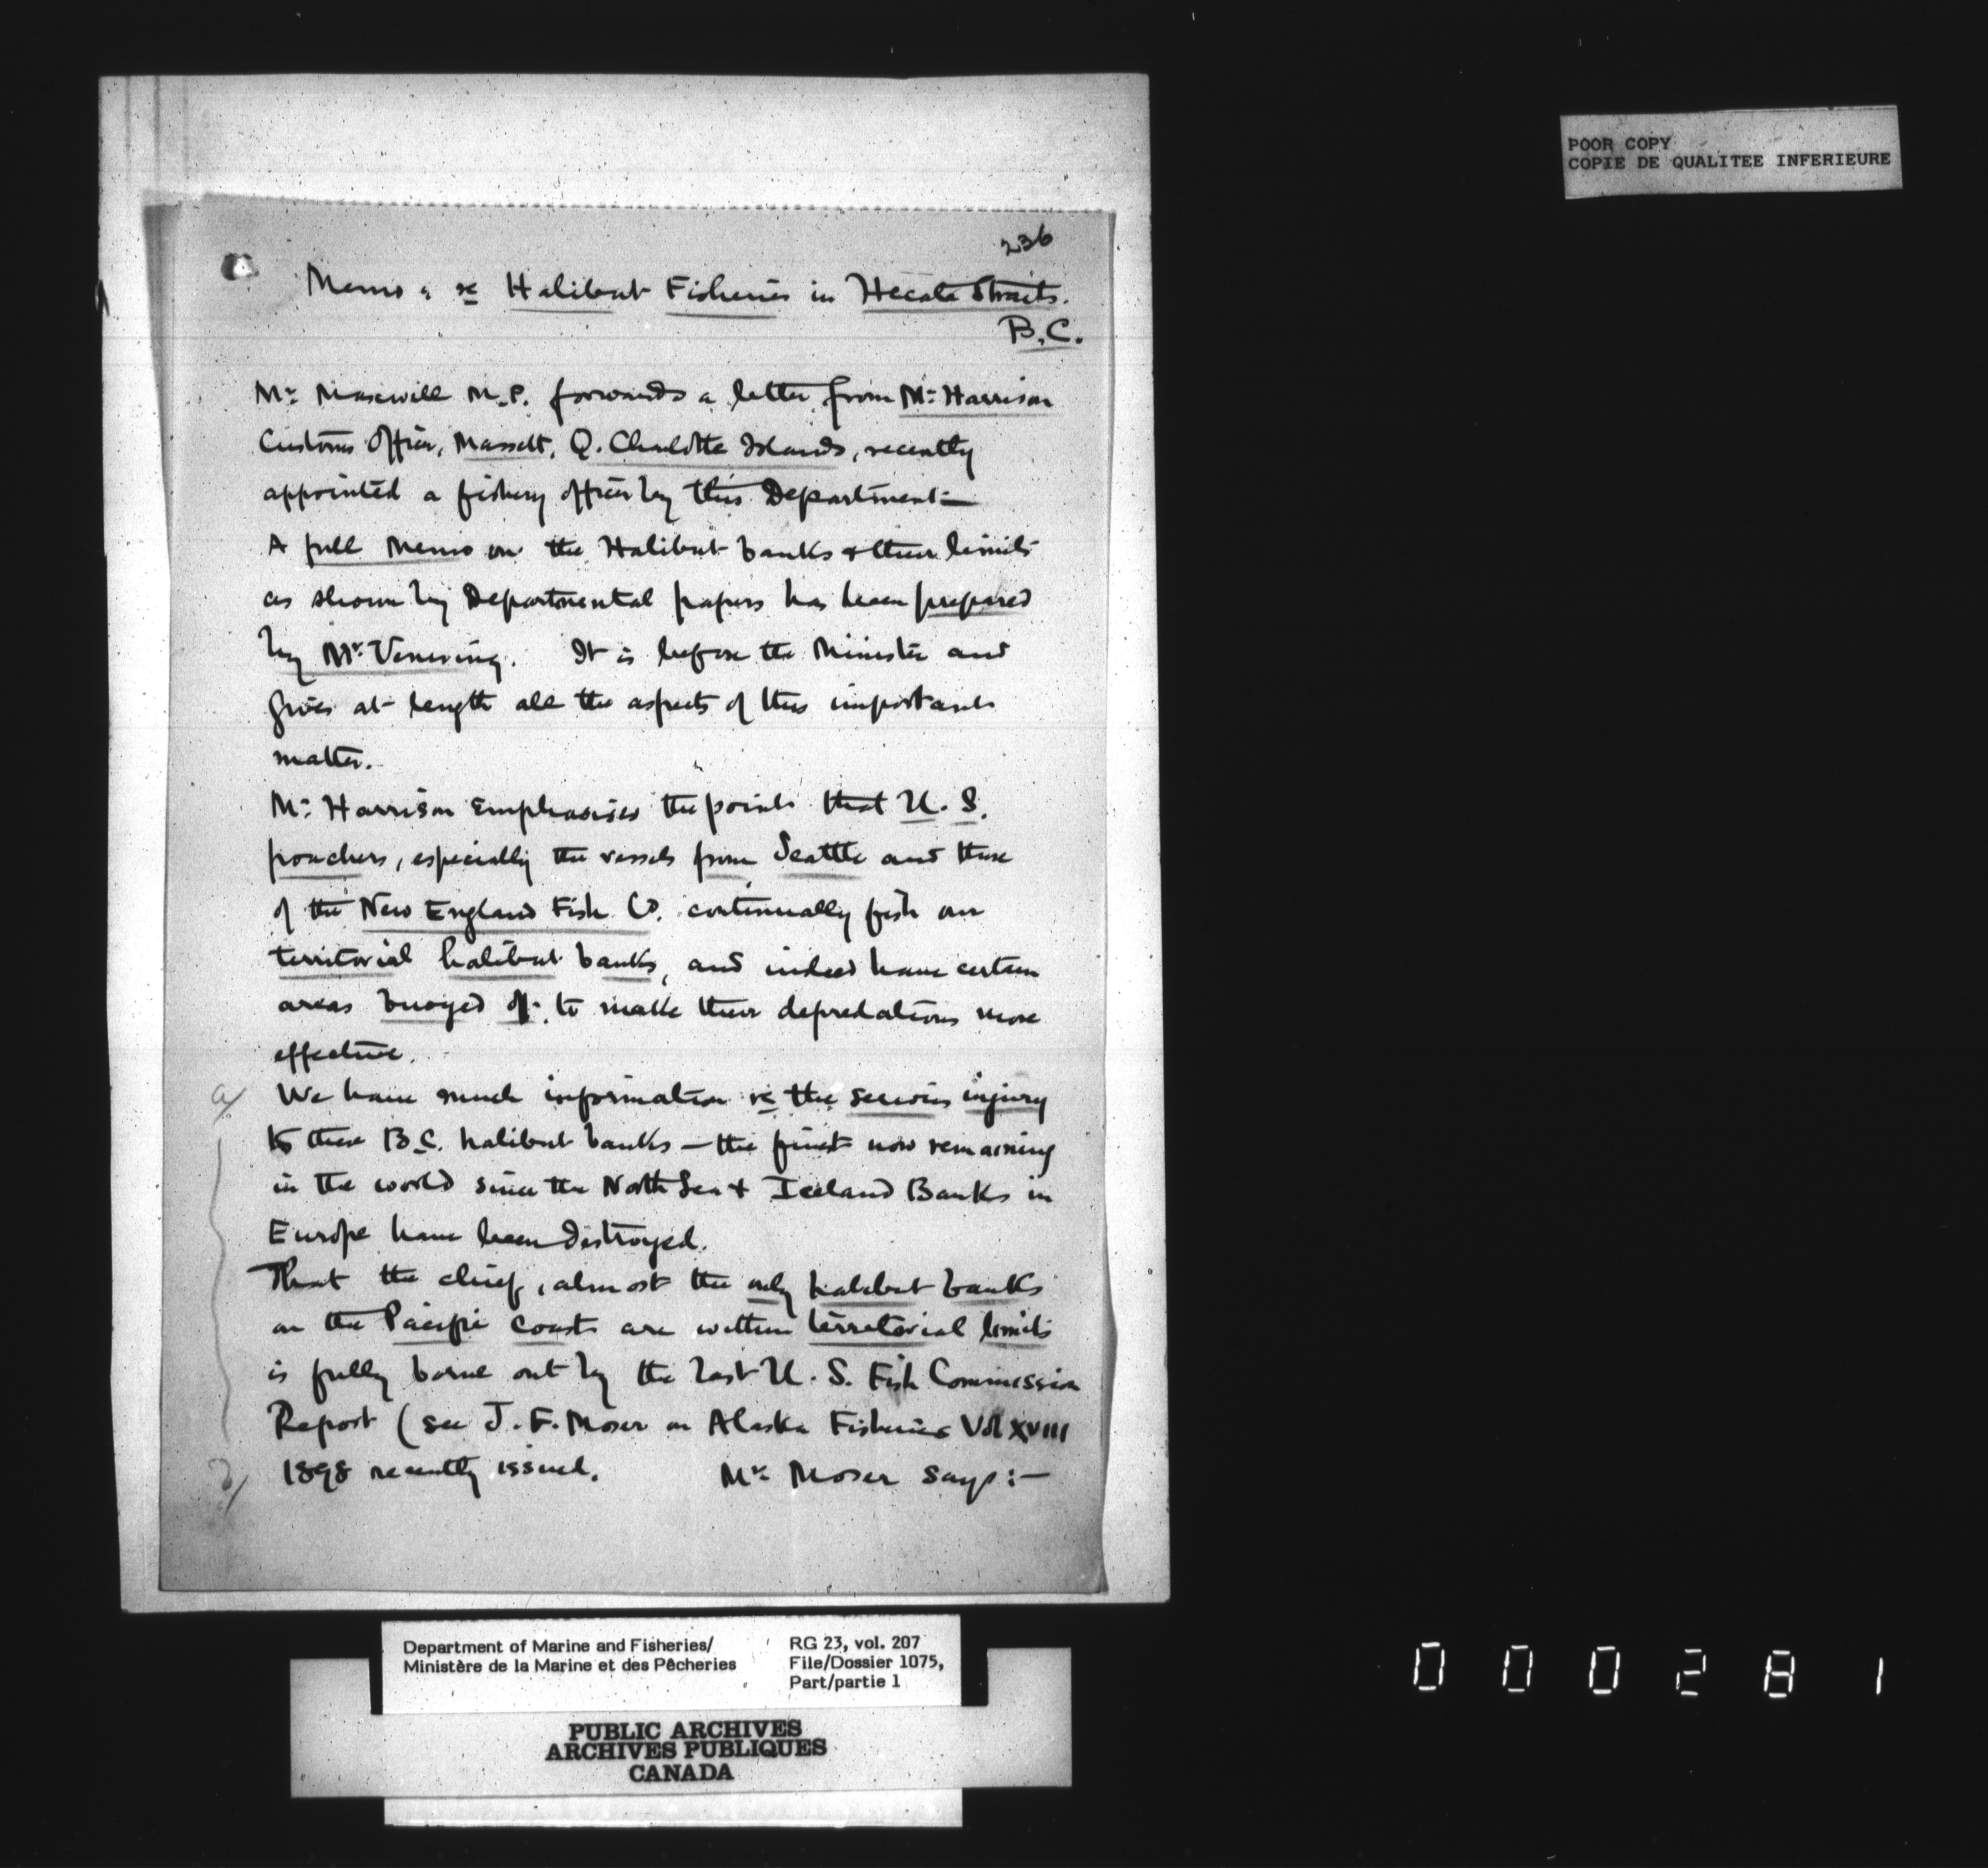 POOR COPY
COPIE DE QUALITEE INFERIEURE
236
Memo re Halibut Fisheries in Hecate Straits.
B.C.
Mr. Maxwell M.P. forwards a letter from Mr. Harrison
Customs Officer, Massett, Q. Charlotte Islands, recently
appointed a fishery officer by this Department —
A full Memo on the Halibut banks & their limits
as shown by Departmental papers has been prepared
by Mr. Venning. It is before the Minister and
gives at length all the aspects of this important
matter.
Mr. Harrison emphasises the points that U. S.
poachers, especially the vessels from Seattle and those
of the New England Fish Co. continually fish our
territorial halibut banks, and indeed have certain
areas buoyed off to make their depredations more
effective.
a/ We have much information re the serious injury
to these B.C. halibut banks — the finest now remaining
in the world since the North Sea & Iceland Banks in
Europe have been destroyed.
That the chief, almost the only halibut banks
on the Pacific coast are within territorial limits
is fully borne out by the last U. S. Fish Commission
Report (see J. F. Moser on Alaska Fisheries Vol XVIII
b/ 1898 recently issued. Mr. Moser says :—
Department of Marine and Fisheries/
Ministère de la Marine et des Pêcheries
RG 23, vol. 207
File/Dossier 1075,
Part/partie 1
PUBLIC ARCHIVES
ARCHIVES PUBLIQUES
CANADA
000281